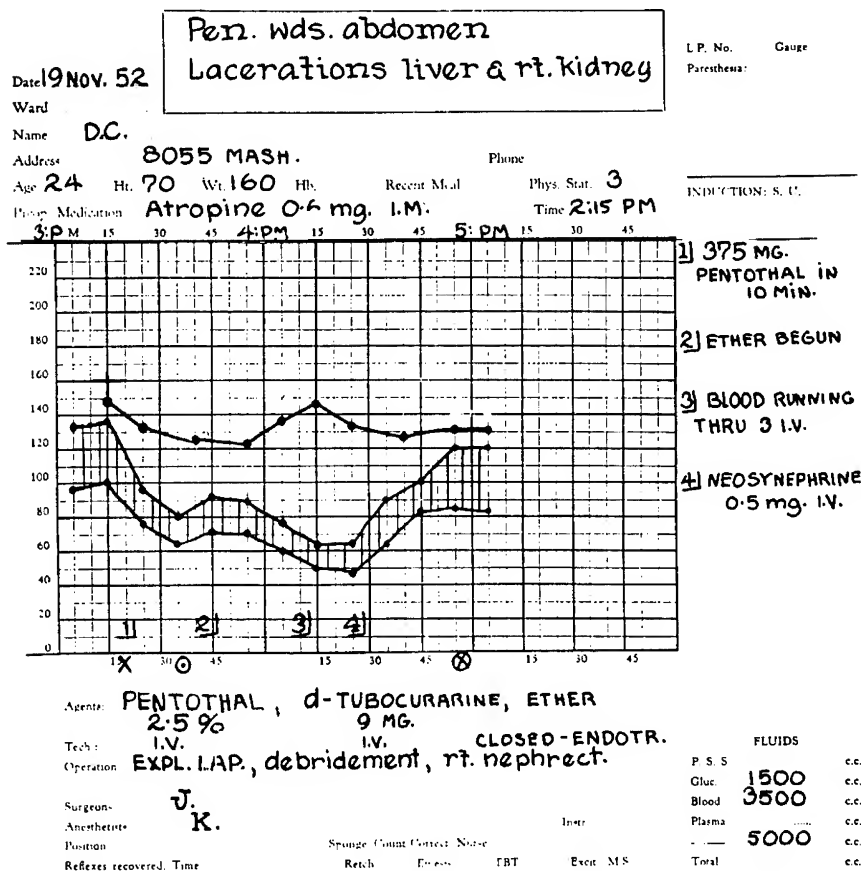 Pen. wds. abdomen
Lacerations liver & rt. kidney
L.P. No. Gauge
Paresthesia:
Date 19 NOV. 52
Ward
Name D.C.
Address 8055 MASH. Phone
Age 24 Ht. 70 Wt. 160 Hb. Recent Meal Phys. Stat. 3
INDUCTION: S. U.
Preop. Medication Atropine 0.6 mg. I.M. Time 2:15 PM
3:P M 15 30 45 4:PM 15 30 45 5:PM 15 30 45
220
200
180
160
140
120
100
80
60
40
20
0
1] 375 MG.
PENTOTHAL IN
10 MIN.
2] ETHER BEGUN
3] BLOOD RUNNING
THRU 3 I.V.
4] NEOSYNEPHRINE
0.5 mg. I.V.
1] 2] 3] 4]
15 X 30 45 15 30 45 15 30 45
Agents: PENTOTHAL, d-TUBOCURARINE, ETHER
2.5% 9 MG.
Tech: I.V. I.V. CLOSED-ENDOTR.
Operation EXPL. LAP., debridement, rt. nephrect.
Surgeons J.
Anesthetists K. Instr.
Position Sponge Count Correct Nurse
Reflexes recovered, Time Retch Excess TBT Excit M S
FLUIDS
P. S. S c.c.
Gluc. 1500 c.c.
Blood 3500 c.c.
Plasma ..... c.c.
5000 c.c.
Total c.c.